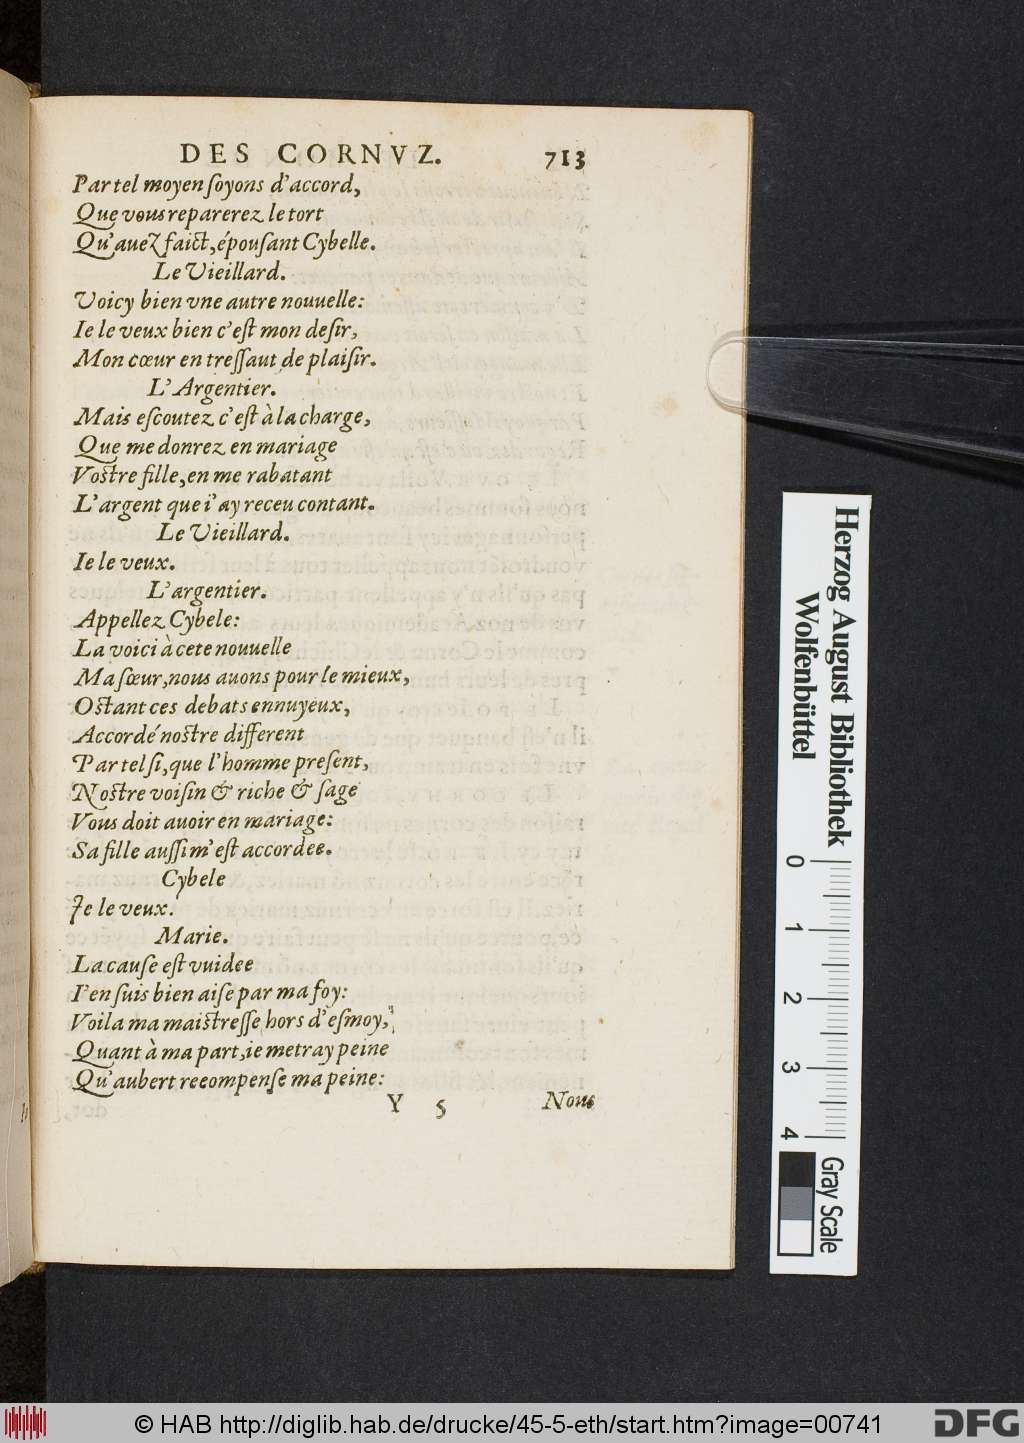 DES CORNVZ. 713
Par tel moyen ſoyons d'accord,
Que vous reparerez le tort
Qu'auez faict, épouſant Cybelle.
Le Vieillard.
Voicy bien vne autre nouuelle:
Ie le veux bien c'eſt mon deſir,
Mon cœur en treſſaut de plaiſir.
L'Argentier.
Mais eſcoutez c'eſt à la charge,
Que me donrez en mariage
Voſtre fille, en me rabatant
L'argent que i'ay receu contant.
Le Vieillard.
Ie le veux.
L'argentier.
Appellez Cybele:
La voici à cete nouuelle
Ma ſœur, nous auons pour le mieux,
Oſtant ces debats ennuyeux,
Accordé noſtre different
Par tel ſi, que l'homme preſent,
Noſtre voiſin & riche & ſage
Vous doit auoir en mariage:
Sa fille auſſi m'eſt accordee.
Cybele
Je le veux.
Marie.
La cauſe eſt vuidee
I'en ſuis bien aiſe par ma foy:
Voila ma maiſtreſſe hors d'eſmoy,
Quant à ma part, ie metray peine
Qu'aubert reeompenſe ma peine:
Y 5 Nous
Herzog August Bibliothek
Wolfenbüttel
0 1 2 3 4
Gray Scale
© HAB http://diglib.hab.de/drucke/45-5-eth/start.htm?image=00741
DFG